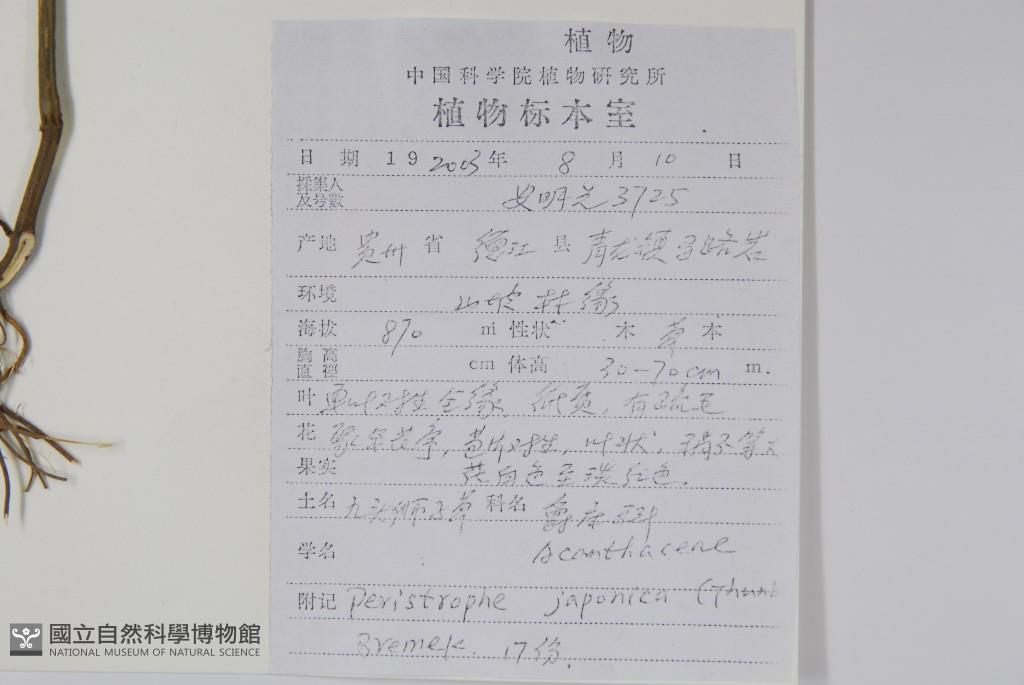 植物
中国科学院植物研究所
植物标本室
日期 19 2003年 8月10日
採集人及号数 安明先 3725
产地 贵州省 德江县 青龙镇
环境 山坡林缘
海拔 870 m 性状 木 草 本
胸高直徑 cm 体高 30-70cm m.
叶 单叶对生全缘 纸质, 有疏毛
花 聚伞花序, 苞片对生, 叶状,
果实 花白色至淡红色.
土名 九头狮子草 科名 爵床科
学名 Acanthaceae
附记 Peristrophe japonica (Thunb
Bremek. 17份.
國立自然科學博物館
NATIONAL MUSEUM OF NATURAL SCIENCE